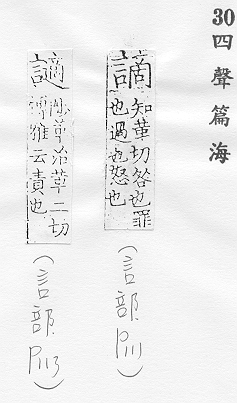 30
四聲篇海
謫
知革切咎也罪
也過也怒也
(言部 P111)
讁
革治革二切
博雅云責也
(言部 P113)